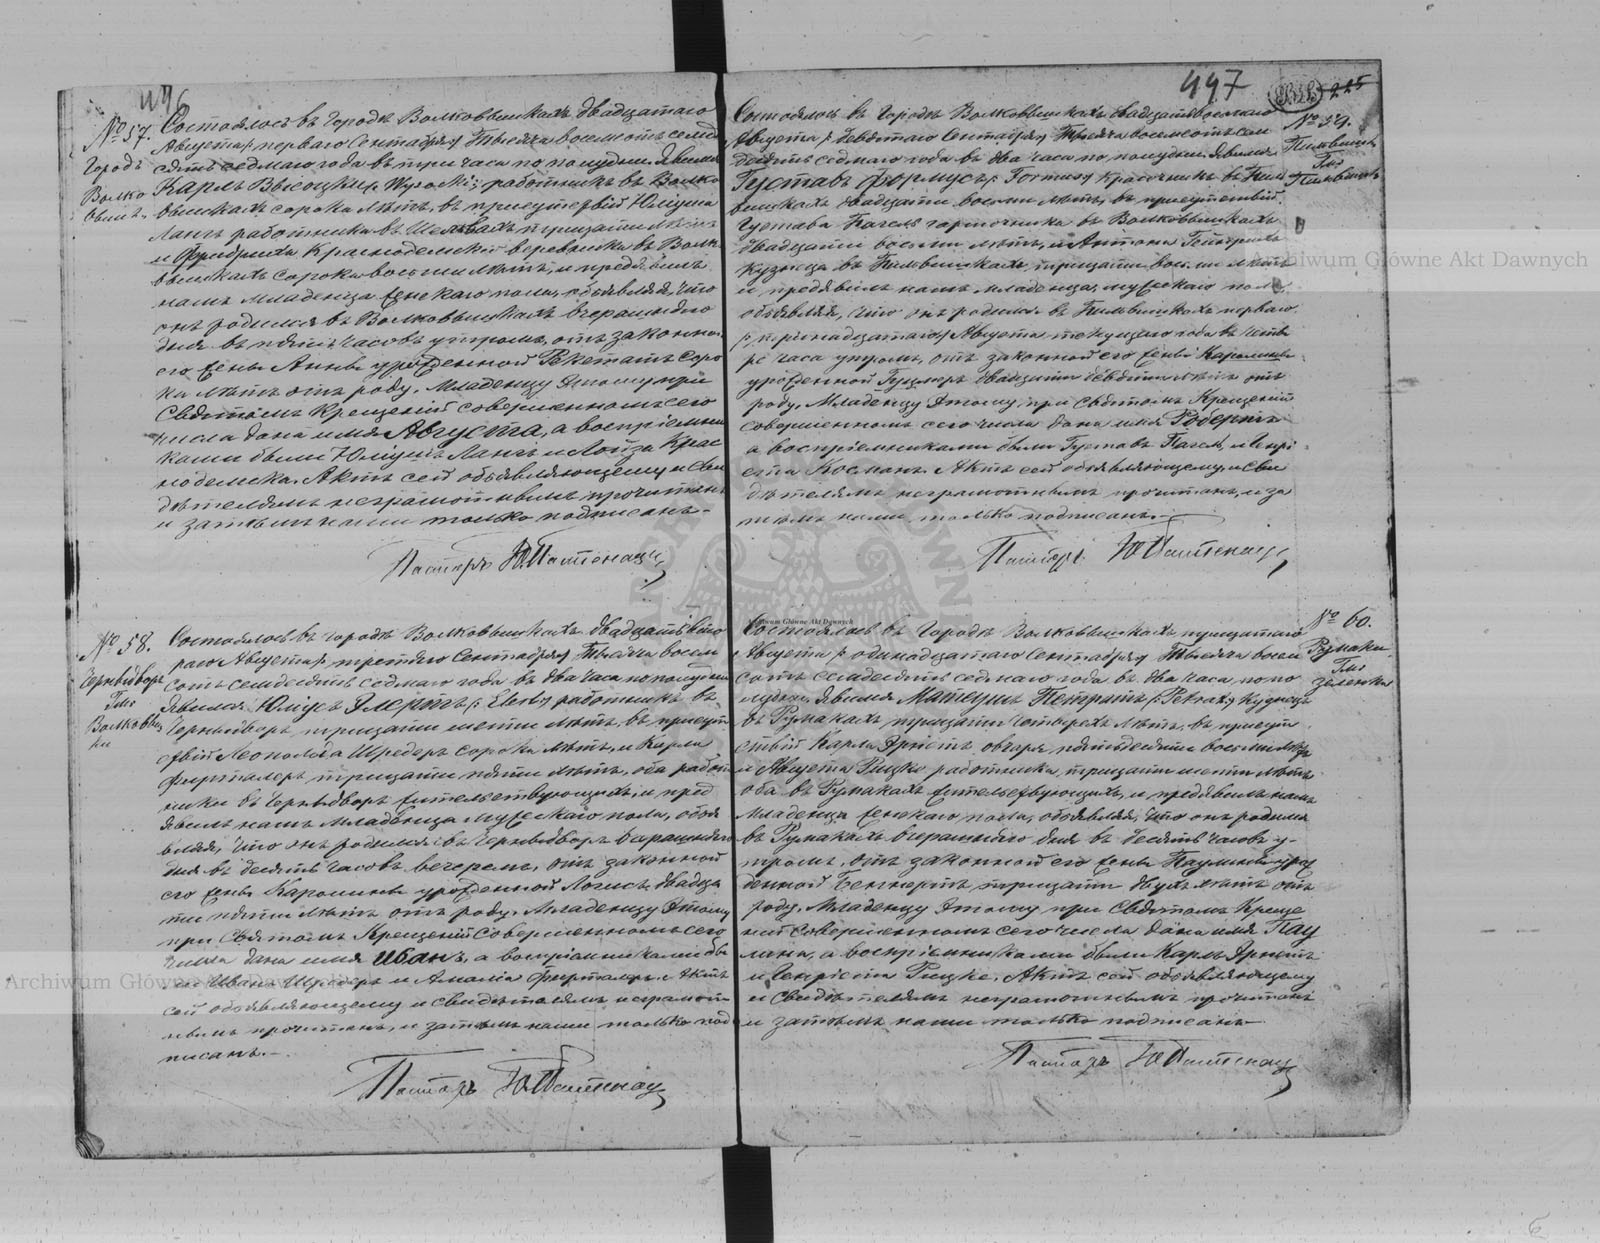 446
№ 57.
Городъ
Волко
выш.
Состоялось въ городѣ Волковышкахъ двадцатаго
Августа /: перваго Сентября :/ тысяча восемьсотъ семде
сятъ седмаго года въ три часа по полудни. Явился
Карлъ Высоцкій работникъ въ Волко
вышкахъ сорока лѣтъ, въ присутствій Юліуша
Лангъ работника въ тридцати лѣтъ
и Фридриха Краснодемскій въ Волко
вышкахъ сорока восьми лѣтъ, и предъявилъ
намъ младенца женскаго пола, объявляя, что
онъ родился въ Волковышкахъ вчерашняго
дня въ пять часовъ утромъ, отъ законной
его жены Анны урожденной Рекетатъ соро
ка лѣтъ отъ роду. Младенцу этому при
Святомъ Крещеніи совершенномъ сего
числа дана имя Августа, а воспріемни
ками были Юліушъ Лангъ и Лойза Крас
нодемска. Актъ сей объявляющему и сви
дѣтелямъ неграмотнымъ прочитанъ
и затѣмъ нами только подписанъ.-
Пасторъ
№ 58.
Чернидворъ
Гми
Волковыш
ки
Состоялось въ городѣ Волковышкахъ двадцать вто
раго Августа /: третяго Сентября :/ тысяча восемь
сотъ семдесятъ седмаго года въ два часа по полудни
Явился Юліусъ Элертъ /: Elert :/ работникъ въ
Чернидворъ, тридцати шести лѣтъ, въ присут
ствій Леопольда Шредеръ сорока лѣтъ, и Карла
Фирталеръ, тридцати пяти лѣтъ, оба работ
ники въ Чернидворъ жительствующихъ, и пред
явилъ намъ младенца мужескаго пола, объя
вляя, что онъ родился въ Чернидворъ вчерашняго
дня въ десять часовъ вечеромъ, отъ законной
его жены Каролины урожденной Логисъ двадца
ти пяти лѣтъ отъ роду. Младенцу этому
при Святомъ Крещеній совершенномъ сего
числа дана имя Иванъ, а воспріемниками бы
ли Иванъ Шредеръ и Амалія Фирталеръ. Актъ
сей объявляющему и свидѣтелямъ неграмот
нымъ прочитанъ, и затѣмъ нами только под
писанъ.-
Пасторъ
447
225
№ 59.
Пильвишк
Гми
Пильвишк
Состоялось въ городѣ Волковышкахъ двадцатвосмаго
Августа /: девятаго Сентября :/ тысяча восемьсотъ сем
десятъ седмаго года въ два часа по полудни. Явился
Густавъ Формусъ /: Formus :/ красочникъ въ Пиль
вишкахъ двадцати восьми лѣтъ, въ присутствій
Густава Пагель горточника въ Волковышкахъ
двадцати восьми лѣтъ, и Антона
кузнеца въ Пильвишкахъ, тридцати восьми лѣтъ
и предявилъ намъ младенца мужескаго пола
объявляя, что онъ родился въ Пильвишкахъ перваго
/: тринадцатаго :/ Августа текущаго года въ четы
ре часа утромъ, отъ законной его жены Каролины
урожденной двадцати девяти лѣтъ отъ
роду. Младенцу этому, при Святомъ Крещеній
совершенномъ сего числа дана имя Робертъ
а воспріемниками были Густавъ Пагель, и Генрі
ета Косманъ. Актъ сей объявляющему и сви
дѣтелямъ неграмотнымъ прочитанъ, и за
тѣмъ нами только подписанъ.-
Пасторъ
№ 60.
Румаки
Гми
Зеленка
Состоялось въ городѣ Волковышкахъ тридцатаго
Августа /: одинадцатаго Сентября :/ тысяча восемь
сотъ семдесятъ седмаго года въ два часа по по
лудни. Явился Матеушъ Петратъ /: Petrat :/ кузнецъ
въ Румакахъ тридцати четырехъ лѣтъ, въ присут
ствій Карла Эрнстъ, овчаря пятьдесяти восьми лѣтъ
и Августа Рицке работника, тридцати шести лѣтъ
оба въ Румакахъ жительствующихъ, и предявилъ намъ
младенца женскаго пола, объявляя, что онъ родился
въ Румакахъ вчерашняго дня въ десять часовъ у-
тромъ, отъ законной его жены Паулины урож
денной тридцати двухъ лѣтъ отъ
роду. Младенцу этому при Святомъ Креще
ній совершенномъ сего числа дана имя Пау
лина, а воспріемниками были Карлъ Эрнстъ
и Генріета Рицке. Актъ сей объявляющему
и свидѣтелямъ неграмотнымъ прочитанъ
и затѣмъ нами только подписанъ
Пасторъ
Archiwum Główne Akt Dawnych
Archiwum Główne Akt Dawnych
Archiwum Główne Akt Dawnych
6